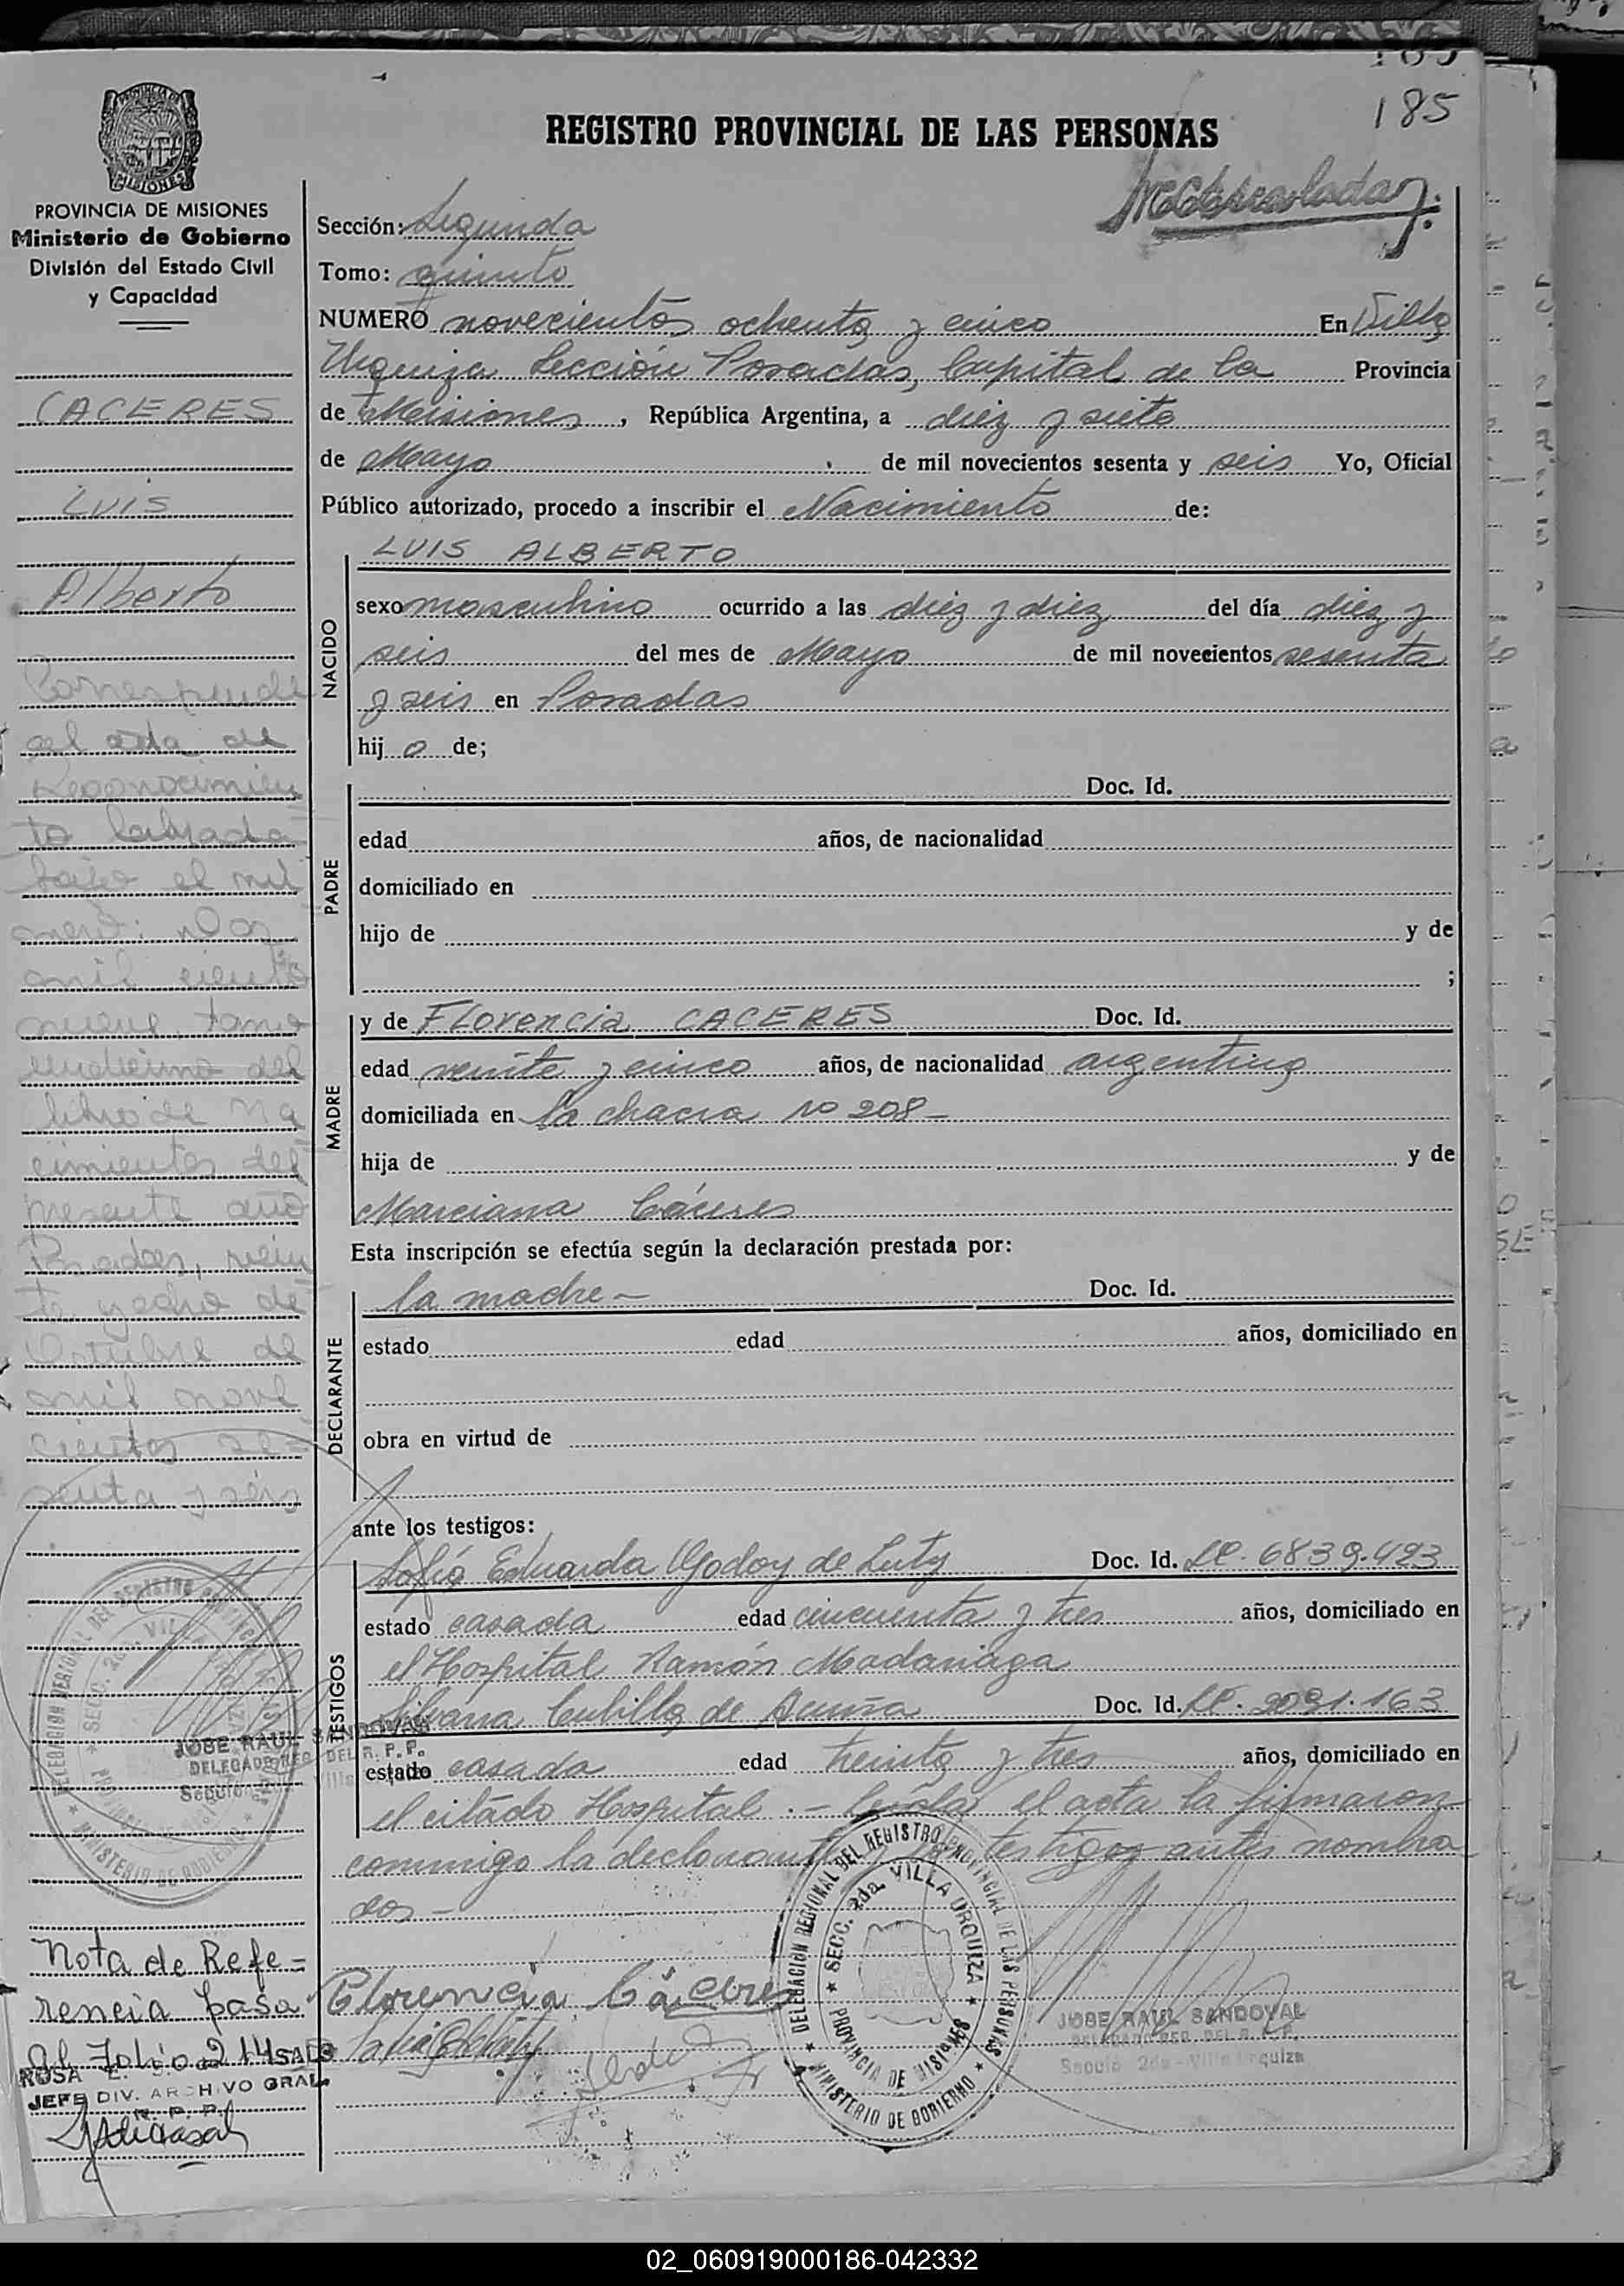 185
REGISTRO PROVINCIAL DE LAS PERSONAS
PROVINCIA DE MISIONES
Ministerio de Gobierno
División del Estado Civil
y Capacidad
CACERES
LUIS
Alberto
Corresponde
al acta de
Reconocimien
to labrada
bajo el nú
mero: Dos
mil ciento
nueve, tomo
undécimo del
libro de Na
cimientos del
presente año
Posadas, vein
te y ocho de
Octubre de
mil nove
cientos se=
senta y seis
Nota de Refe=
rencia pasa
al Folio 214
ROSA E. SALD
JEFE DIV. ARCHIVO GRAL.
R. P. P.
Sección: Segunda
Tomo: quinto
NUMERO novecientos ochenta y cinco En Villa
Urquiza Sección Posadas, Capital de la Provincia
de Misiones, República Argentina, a diez y siete
de Mayo de mil novecientos sesenta y seis Yo, Oficial
Público autorizado, procedo a inscribir el Nacimiento de:
NACIDO
LUIS ALBERTO
sexo masculino ocurrido a las diez y diez del día diez y
seis del mes de Mayo de mil novecientos sesenta
y seis en Posadas
hij o de;
PADRE
Doc. Id.
edad años, de nacionalidad
domiciliado en
hijo de y de
;
MADRE
y de Florencia CACERES Doc. Id.
edad veinte y cinco años, de nacionalidad argentina
domiciliada en la chacra No 208-
hija de y de
Marciana Cáceres
Esta inscripción se efectúa según la declaración prestada por:
DECLARANTE
la madre - Doc. Id.
estado edad años, domiciliado en
obra en virtud de
ante los testigos:
TESTIGOS
Sofía Eduarda Godoy de Luty Doc. Id. LC. 6839.423
estado casada edad cincuenta y tres años, domiciliado en
el Hospital Ramón Madariaga
Silvana Cubilla de Acuña Doc. Id. LC. 2091.163
estado casada edad treinta y tres años, domiciliado en
el citado Hospital.- Leída el acta la firmaron
conmigo la declarante testigos antes nombra
dos-
Florencia Cáceres
DELEGACION REGIONAL DEL REGISTRO PROVINCIAL DE LAS PERSONAS
SECC. 2da. VILLA URQUIZA
PROVINCIA DE MISIONES
MINISTERIO DE GOBIERNO
JOSE RAUL SANDOVAL
DELEGADO REG. DEL R. P. P.
Sección 2da - Villa Urquiza
DELEGACION REGIONAL DEL REGISTRO
SECC. 2da. VILLA
MINISTERIO DE GOBIERNO
JOSE RAUL SANDOVAL
DELEGADO REG. DEL R. P. P.
02_060919000186-042332